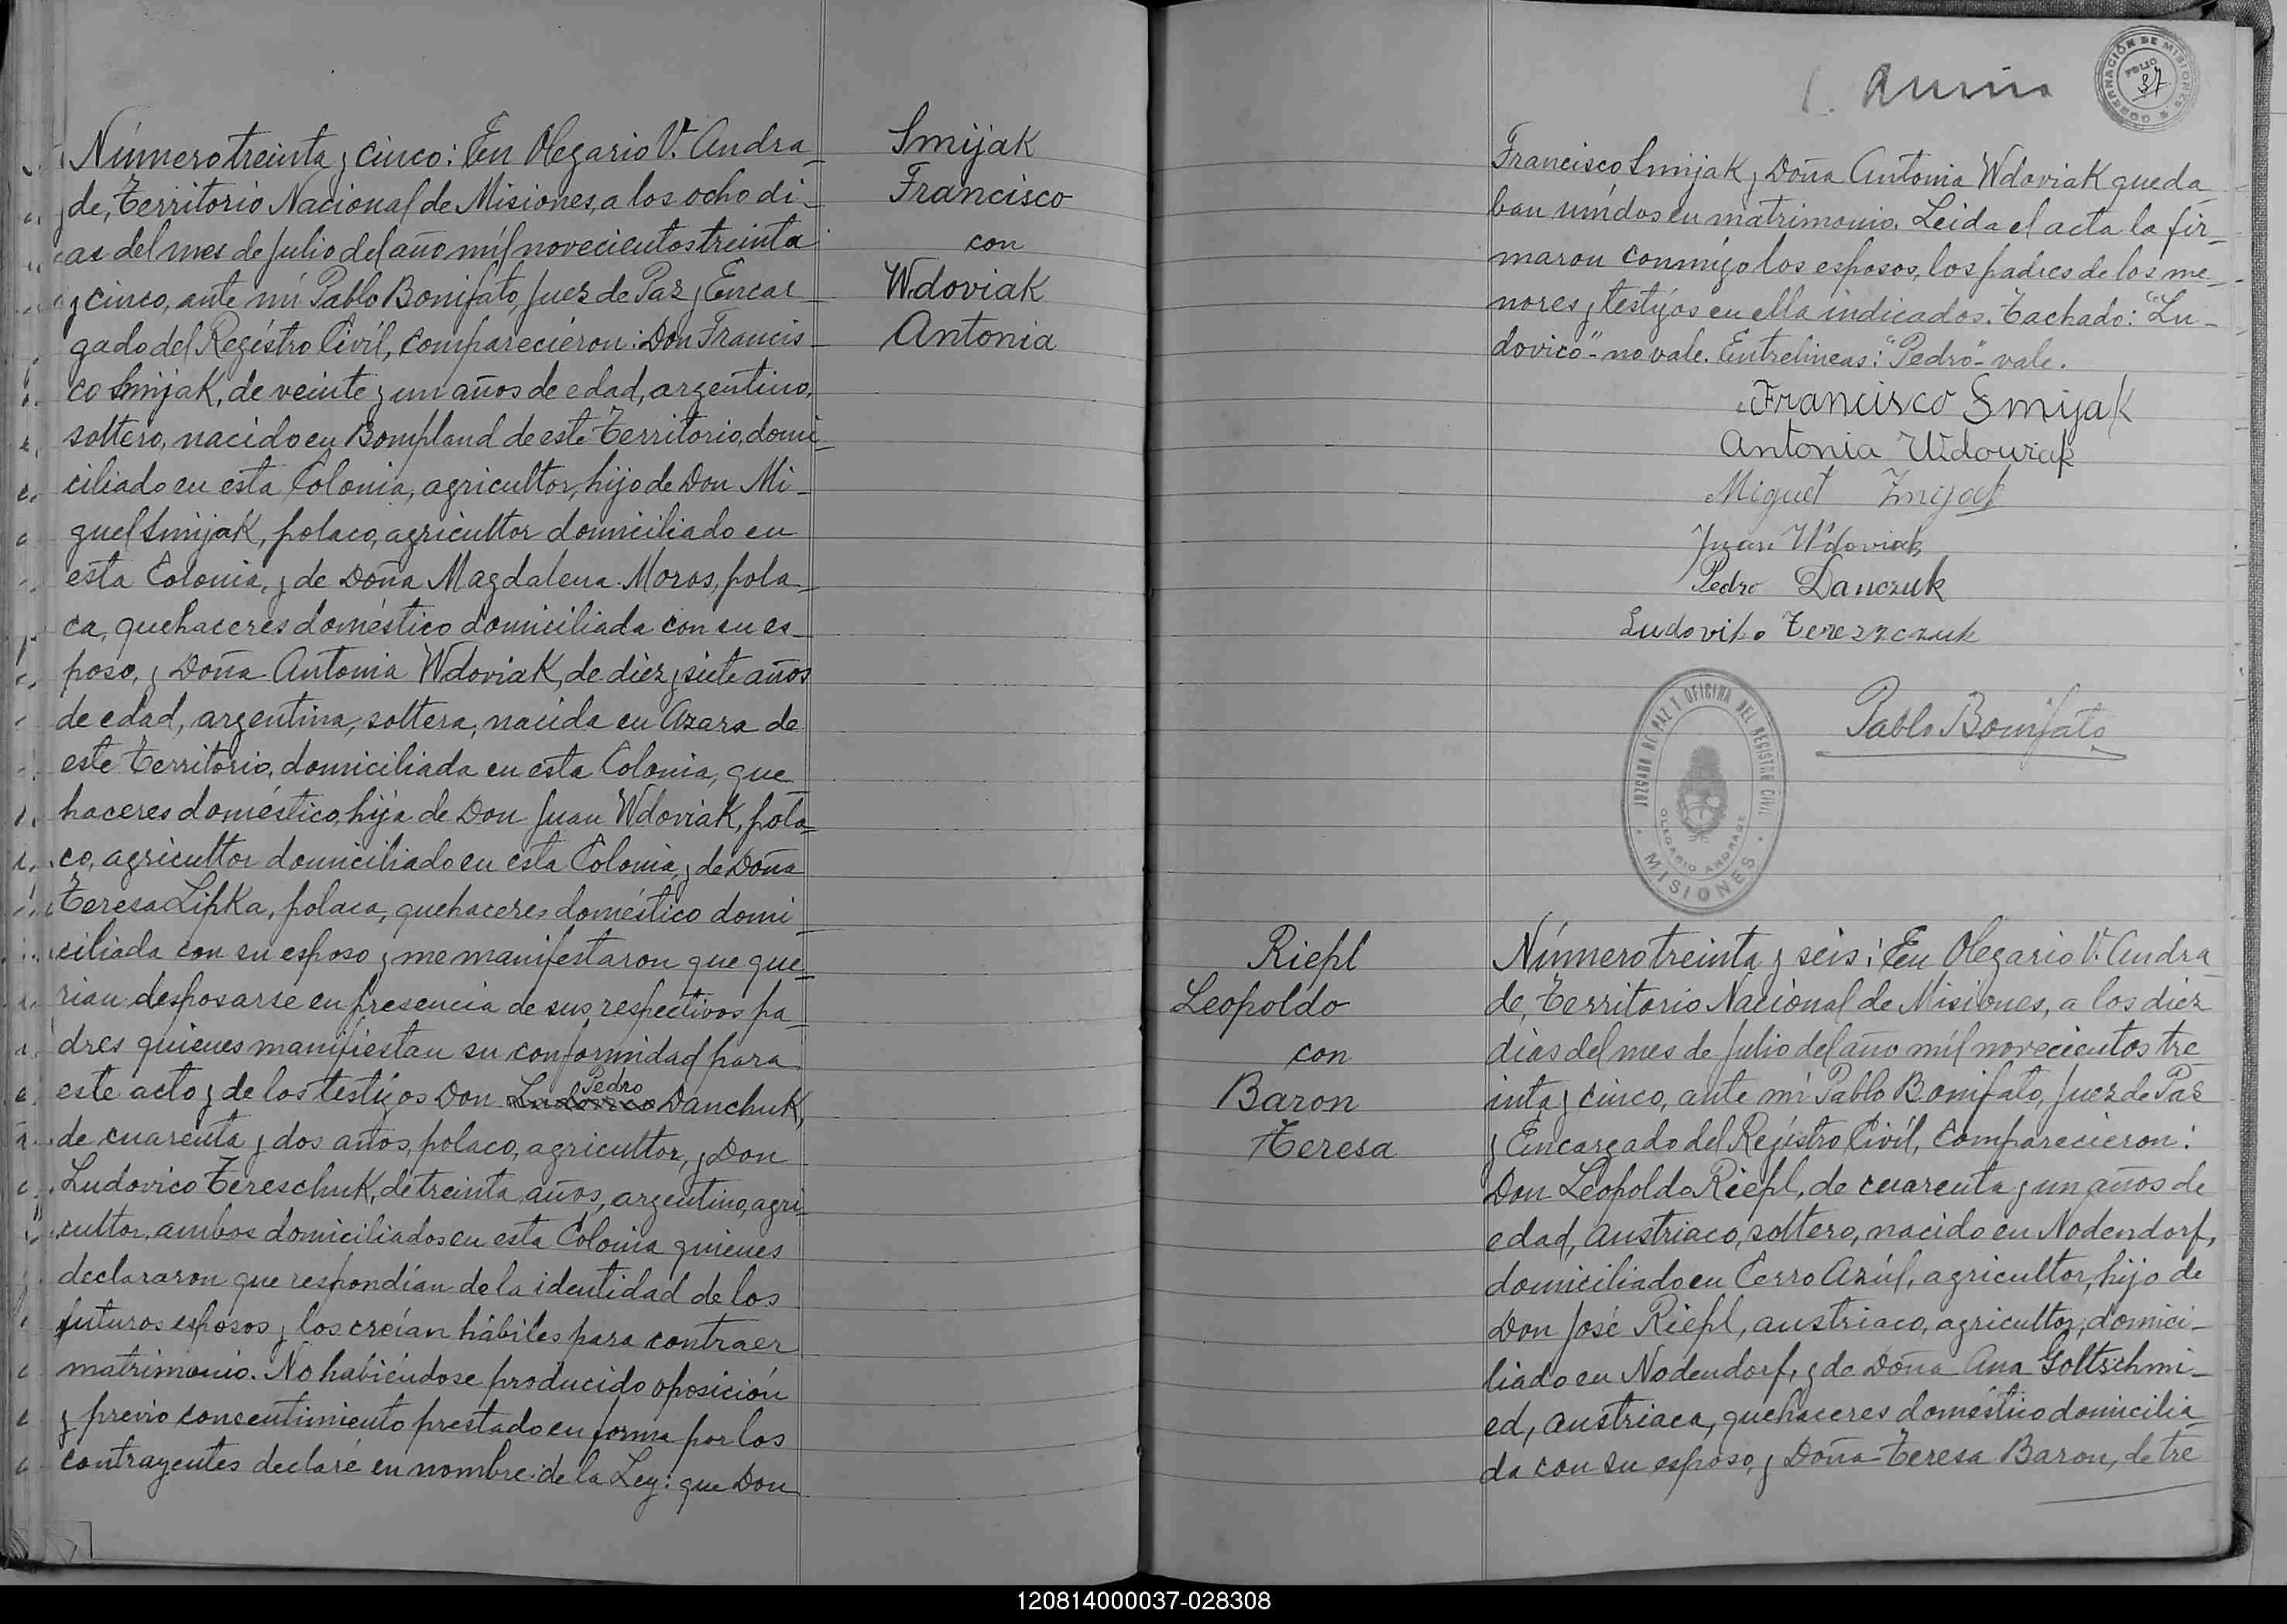 Número treinta y cinco: En Olegario V. Andra-
de, Territorio Nacional de Misiones, a los ocho dí-
as del mes de Julio del año mil novecientos treinta
y cinco, ante mí Pablo Bonifato, Juez de Paz y Encar-
gado del Regístro Civíl, comparecieron: Don Francis-
co Smijak, de veinte y un años de edad, argentino,
soltero, nacido en Bompland de este Territorio, domi-
ciliado en esta Colonia, agricultor, hijo de Don Mi-
guel Smijak, polaco, agricultor domiciliado en
esta Colonia, y de Doña Magdalena Moros, pola-
ca, quehaceres doméstico domiciliada con su es-
poso, y Doña Antonia Wdoviak, de diez y siete años
de edad, argentina, soltera, nacida en Azara de
este Territorio, domiciliada en esta Colonia, que
haceres doméstico, hija de Don Juan Wdoviak, pola-
co, agricultor domiciliado en esta Colonia, y de Doña
Teresa Lipka, polaca, quehaceres doméstico domi-
ciliada con su esposo y me manifestaron que que-
rían desposarse en presencia de sus respectivos pa-
dres quienes manifiestan su conformidad para
este acto y de los testigos Don Ludovico Pedro Danchuk,
de cuarenta y dos años, polaco, agricultor, y Don
Ludovico Tereschuk, de treinta años, argentino, agri-
cultor, ambos domiciliados en esta Colonia quienes
declararon que respondían de la identidad de los
futuros esposos y los creían hábiles para contraer
matrimonio. No habiéndose producido oposición
y previo consentimiento prestado en forma por los
contrayentes declaré en nombre de la Ley: que Don
Smijak
Francisco
con
Wdoviak
Antonia
GOBERNACIÓN DE MISIONES
FOLIO
37
Francisco Smijak y Doña Antonia Wdoviak queda-
ban unídos en matrimonio. Leida el acta la fir-
maron conmígo los esposos, los padres de los me-
nores y testígos en ella indicados. Tachado: "Lu-
dovico"- no vale. Entrelineas: "Pedro"- vale.
Francisco Smijak
Antonia Wdowiak
Miguel Zmijak
Juan Wdoviak
Pedro Danczuk
Ludoviko Tereszczuk
Pablo Bonifato
JUZGADO DE PAZ Y OFICINA DEL REGISTRO CIVIL
OLEGARIO ANDRADE
MISIONES
Riepl
Leopoldo
con
Baron
Teresa
Número treinta y seis: En Olegario V. Andra-
de, Territorio Nacional de Misiones, a los diez
días del mes de Julio del año mil novecientos tre
inta y cinco, ante mí Pablo Bonifato, Juez de Paz
y Encargado del Regístro Civíl, comparecieron:
Don Leopoldo Riepl, de cuarenta y un años de
edad, austriaco, soltero, nacido en Nodendorf,
domiciliado en Cerro Azúl, agricultor, hijo de
Don José Riepl, austriaco, agricultor, domici-
liado en Nodendorf, y de Doña Ana Goltschmi-
ed, austriaca, quehaceres doméstico domicilia-
da con su esposo, y Doña Teresa Baron, de tre
120814000037-028308